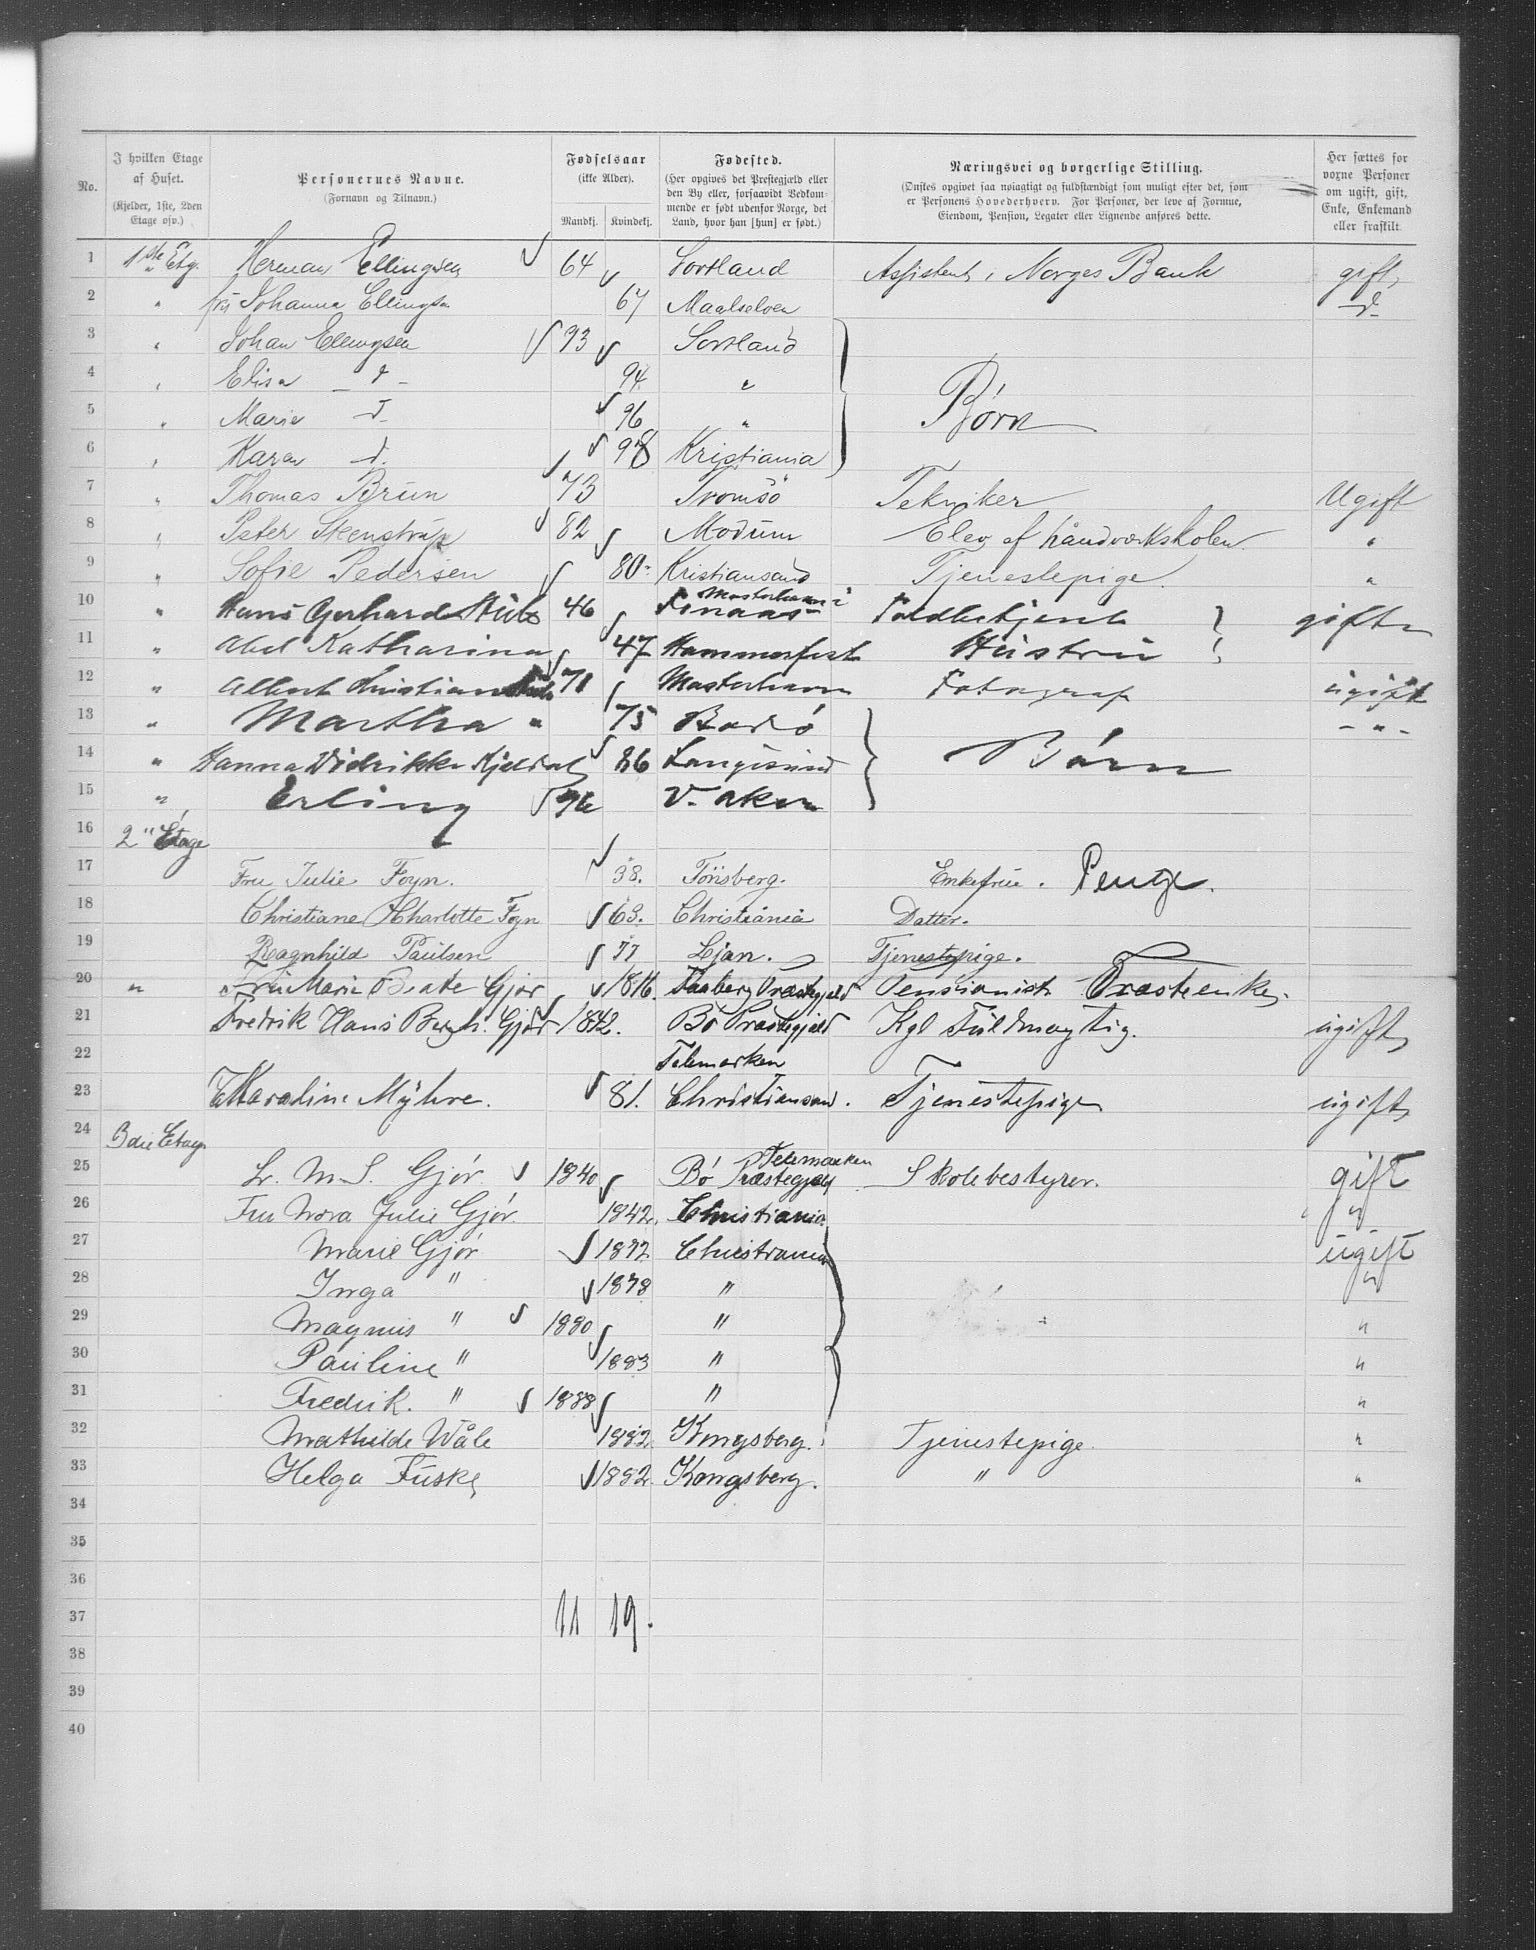 No.
I hvilken Etage af Huset. (Kjelder, 1ste, 2den Etage osv.)
Personernes Navne. (Fornavn og Tilnavn.)
Fødselsaar (ikke Alder). Mandkj. Kvindekj.
Fødested. (Her opgives det Prestegjæld eller den By eller, forsaavidt Vedkommende er født udenfor Norge, det Land, hvor han [hun] er født.)
Næringsvei og borgerlige Stilling. (Ønskes opgivet saa nøiagtigt og fuldstændigt som muligt efter det, som er Personens Hovederhverv. For Personer, der leve af Formue, Eiendom, Pension, Legater eller Lignende anføres dette.
Her sættes for voxne Personer om ugift, gift, Enke, Enkemand eller fraskilt.
1 1ste Etg. Herman Ellingsen 64 Sortland Assistent i Norges Bank gift
2 " fru Johanna Ellingsen 67 Maalselven d
3 " Johan Ellingsen 93 Sortland
4 " Elisa - d - 94 "
5 " Marie d 96 " Børn
6 " Karen d. 98 Kristiania
7 " Thomas Brun 73 Tromsö Tekniker Ugift
8 " Peter Steenstrup 82 Modum Elev af håndverkskolen. "
9 " Sofie Pedersen 80 Kristiansand Tjenestepige "
10 " Hans Gerhard 46 Masterhavn i Finaas Toldbetjent gift
11 " Abel Katharina 47 Hammerfest Hustru
12 " Albert Christian 71 Masterhavn Fotograf ugift
13 " Martha " 75 Bodø - " -
14 " Hanna Didrikke 86 Langesund Børn
15 " Erling 96 V. Aker
16 2" Etage
17 Fru Julie Foyn. 38. Tönsberg. Enkefrue. Penge.
18 Christiane Charlotte Foyn 63. Christiania Datter.
19 Ragnhild Paulsen 77 Ljan. Tjenestepige.
20 " Fru Marie Beate Gjør 1816. Faaberg Præstegjeld Pensionist Præsteenke.
21 Fredrik Hans Bergh. Gjør 1842. Bø Præstegjeld Kgl Fuldmægtig. ugift
22 Telemarken
23 Karoline Myhre. 81. Christiansand. Tjenestepige ugift
24 3die Etage
25 Hr. M. S. Gjør 1840 Bø Præstegjeld Telemarken Skolebestyrer. gift
26 Fru Nora Julie Gjør. 1842. Christiania "
27 Marie Gjør 1872 Christiania ugift
28 Inga " 1878 " "
29 Magnus " 1880 " "
30 Pauline " 1883 " "
31 Fredrik. " 1888 " "
32 Mathilde Wåle 1882 Kongsberg. Tjenestepige. "
33 Helga Fuske 1882. Kongsberg. " "
34
35
36
37 11 19.
38
39
40